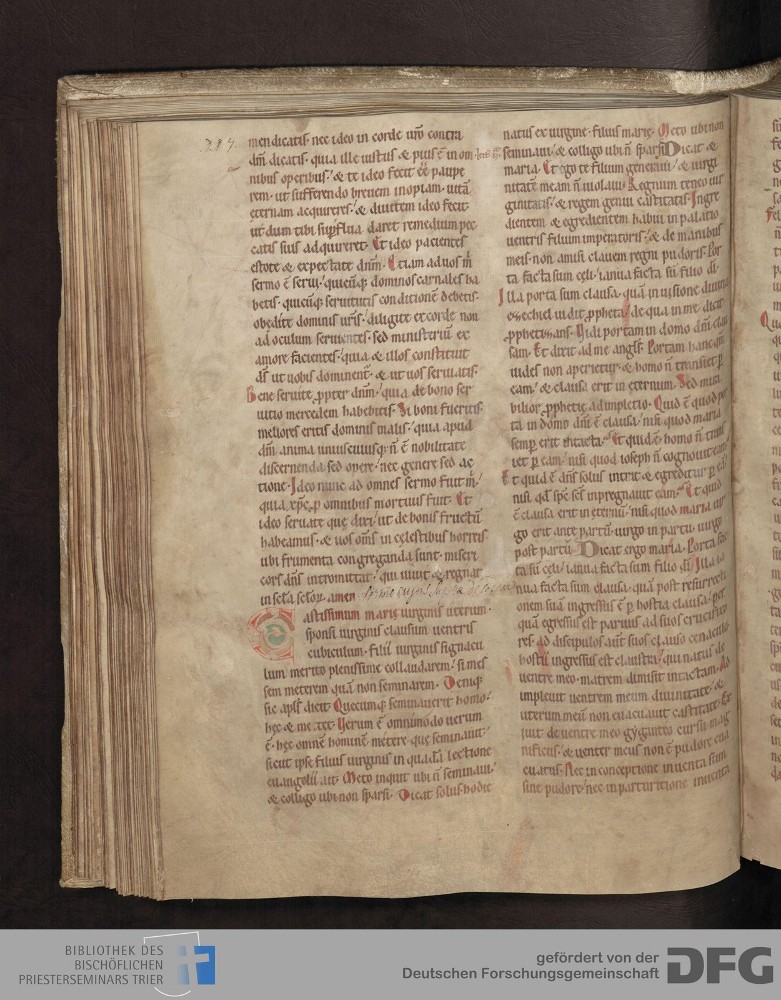 mendicatis· nec ideo in corde ur̄o contra
dm̄ dicatis· quia ille iustus & pius ē in om
nibus operibus· & te ideo fecit eē paupe
rem· ut sufferendo breuem inopiam· uitā
eternam acquireres· & diuitem ideo fecit·
ut dum tibi supflua daret remedium pec
catis suis adquireret· Et ideo pacientes
estote & expectate dnm̄· Etiam ad uos m̄
sermo ē serui· quicūq; dominos carnales ha
betis· quicūq; seruitutis conditionē debetis·
obedite dominis ur̄is· diligite ex corde non
ad oculum seruientes· sed ministeriū ex
amore facientes· quia & illos constituit
ds̄ ut uobis dominent̄· & ut uos seruiatis·
Bene seruite ꝓpter dnm̄· quia de bono ser
uitio mercedem habebitis· Si boni fueritis·
meliores eritis dominis malis· quia apud
dm̄ anima uniuscuiusq; n̄ ē nobilitate
discernenda sed opere· nec genere sed ac
tione· Ideo nunc ad omnes sermo fuit m̄·
quia xp̄c ꝓ omnibus mortuus fuit· Et
ideo seruate que dixi· ut de bonis fructū
habeamus· & uos om̄s in celestibus horreis
ubi frumenta congreganda sunt· miseri
cors dn̄s intromittat· qui uiuit & regnat
in scl̄a sclōꝝ· amen
Castissimum marie uirginis uterum·
sponsi uirginis clausum uentris
cubiculum· filii uirginis signacu
lum merito plenissime collaudarem· si mes
sem meterem quā non seminarem· Deniq;
sic apl̄s dicit Quecumq; seminauerit homo·
hec & metet· Verum ē omnimodo uerum
ē· hec omnē hominē metere que seminauit·
sicut ipse filius uirginis in quadā lectione
euangelii ait· Meto inquit ubi n̄ seminaui·
& colligo ubi non sparsi· Dicat solus hodie
natus ex uirgine· filius marie· Meto ubi non
seminaui· & colligo ubi n̄ sparsi· Dicat &
maria· Et ego te filium generaui· & uirgi
nitatē meam n̄ uiolaui· Regnum teneo uir
ginitatis· & regem genui castitatis· Ingre
dientem & egredientem habui in palatio
uentris filium imperatoris· & de manibus
meis non amisi clauem regni pudoris· Por
ta facta sum celi· ianua facta sū filio di·
Illa porta sum clausa· quā in uisione diuina
ezechiel uidit ꝓpheta· de qua in me dicit
ꝓphetizans· Vidi portam in domo dnī clau
sam· Et dixit ad me angls· Portam hanc quā
uides non aperietur· & homo n̄ transiet p
eam· & clausa erit in eternum· Sed mira
bilior ꝓphetie adimpletio· Quid ē quod por
ta in domo dnī ē clausa· nisi quod maria
semp erit intacta· Et quid ē homo n̄ trans
iet p eam· nisi quod ioseph n̄ cognouit eam·
Et quid ē dn̄s solus intrat & egreditur p eā·
nisi qd sp̄c sc̄s inpregnauit eam· Et quid
ē clausa erit in eternū· nisi quod maria uir
go erit ante partū· uirgo in partu· uirgo
post partū· Dicat ergo maria· Porta fac
ta sū celi· ianua facta sum filio di· Illa ia
nua facta sum clausa· quā post resurrecti
onem suā ingressus ē p hostia clausa· per
quā egressus est paruus ad suos crucifixo
res· ad discipulos aūt suos clauso cenaculo
hostii ingressus est claustra· qui natus de
uentre meo· matrem dimisit intactam· Ad
impleuit uentrem meum diuinitate· &
uterum meū non euacuauit castitate· Ex
iuit de uentre meo gyganteo cursu mag
nificus· & uenter meus non ē pudore eua
cuatus· Nec in conceptione inuenta sum
sine pudore· nec in parturitione inuenta
BIBLIOTHEK DES
BISCHÖFLICHEN
PRIESTERSEMINARS TRIER
gefördert von der
Deutschen Forschungsgemeinschaft
DFG